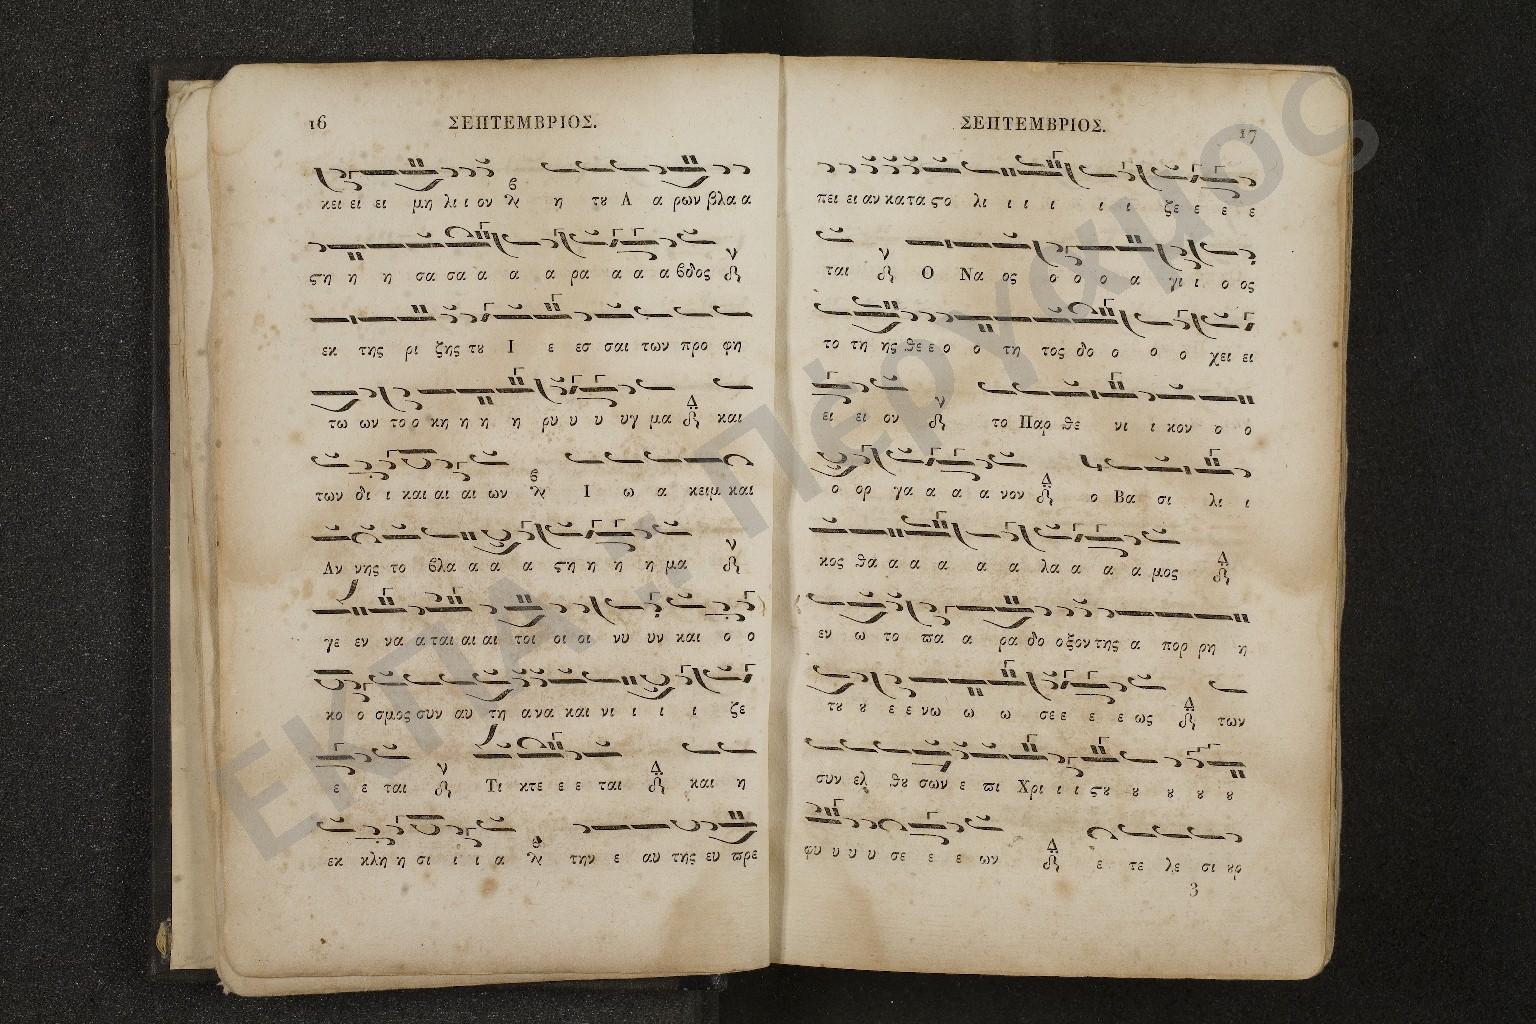 16
ΣΕΠΤΕΜΒΡΙΟΣ.
κει ει ει μη λι ι ον η τȣ Α α ρων βλα α
ϛη η η σα σα α α α ρα α α α βδος
εκ της ρι ζης τȣ Ι ε εσ σαι των προ φη
τω ων το ο κη η η η ρυ υ υ υγ μα και
των δι ι και αι αι ων Ι ω α κειμ και
Αν νης το βλα α α α ϛη η η η μα
γε εν να α ται αι αι τοι οι οι νυ υν και ο ο
κο ο σμος συν αυ τη α να και νι ι ι ι ζε
ε ε ται Τι κτε ε ε ται και η
εκ κλη η σι ι ι α την ε αυ της ευ πρε
ΣΕΠΤΕΜΒΡΙΟΣ.
17
πει ει αν κα τα ϛο λι ι ι ι ι ι ζε ε ε ε
ται Ο Να ος ο ο ο α γι ι ο ος
το τη ης θε ε ο ο τη τος δο ο ο ο χει ει
ει ει ον το Παρ θε νι ι κον ο ο
ο ορ γα α α α νον ο Βα σι λι ι
κος θα α α α α λα α α α μος
εν ω το πα α ρα δο ο ξον της α πορ ρη η
τȣ ȣ ε ε νω ω ω σε ε ε ε ως των
συν ελ θȣ σων ε πι Χρι ι ι ϛȣ ȣ ȣ ȣ ȣ
φυ υ υ υ σε ε ε ων ε τε λε σι ȣρ
3
ΕΚΠΑ - Πέργαμος